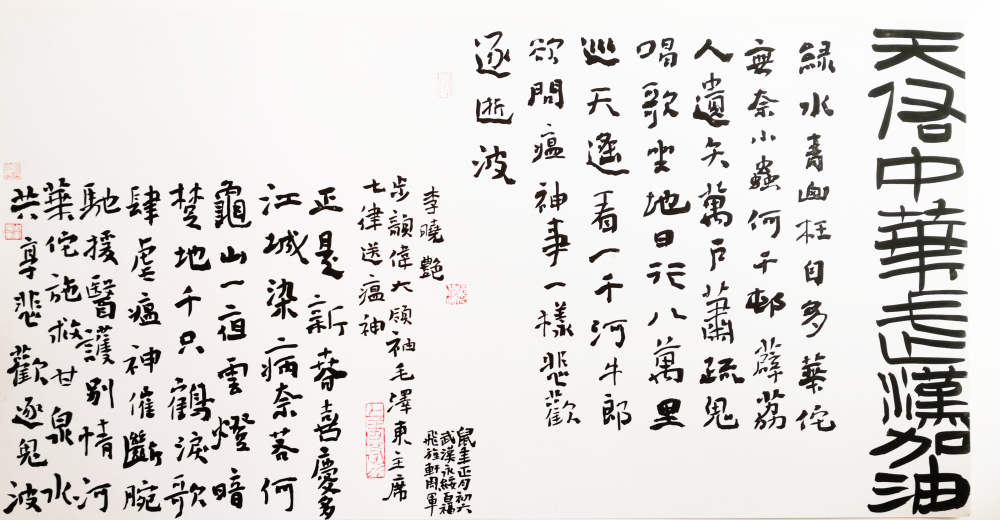 天佑中華武漢加油
綠水青山枉自多華佗
無奈小蟲何千邨薜荔
人遺矢萬戶蕭疏鬼
唱歌坐地日行八萬里
巡天遙看一千河牛郎
欲問瘟神事一樣悲歡
逐逝波
李曉艷
步韻偉大領袖毛澤東主席
七律送瘟神
正是新春喜慶多
江城染病奈若何
龜山一宿雲燈暗
楚地千只鶴淚歌
肆虐瘟神催斷腕
馳援醫護別情河
華佗施救甘泉水
共享悲歡逐鬼波
鼠年正月初六
武漢
軍